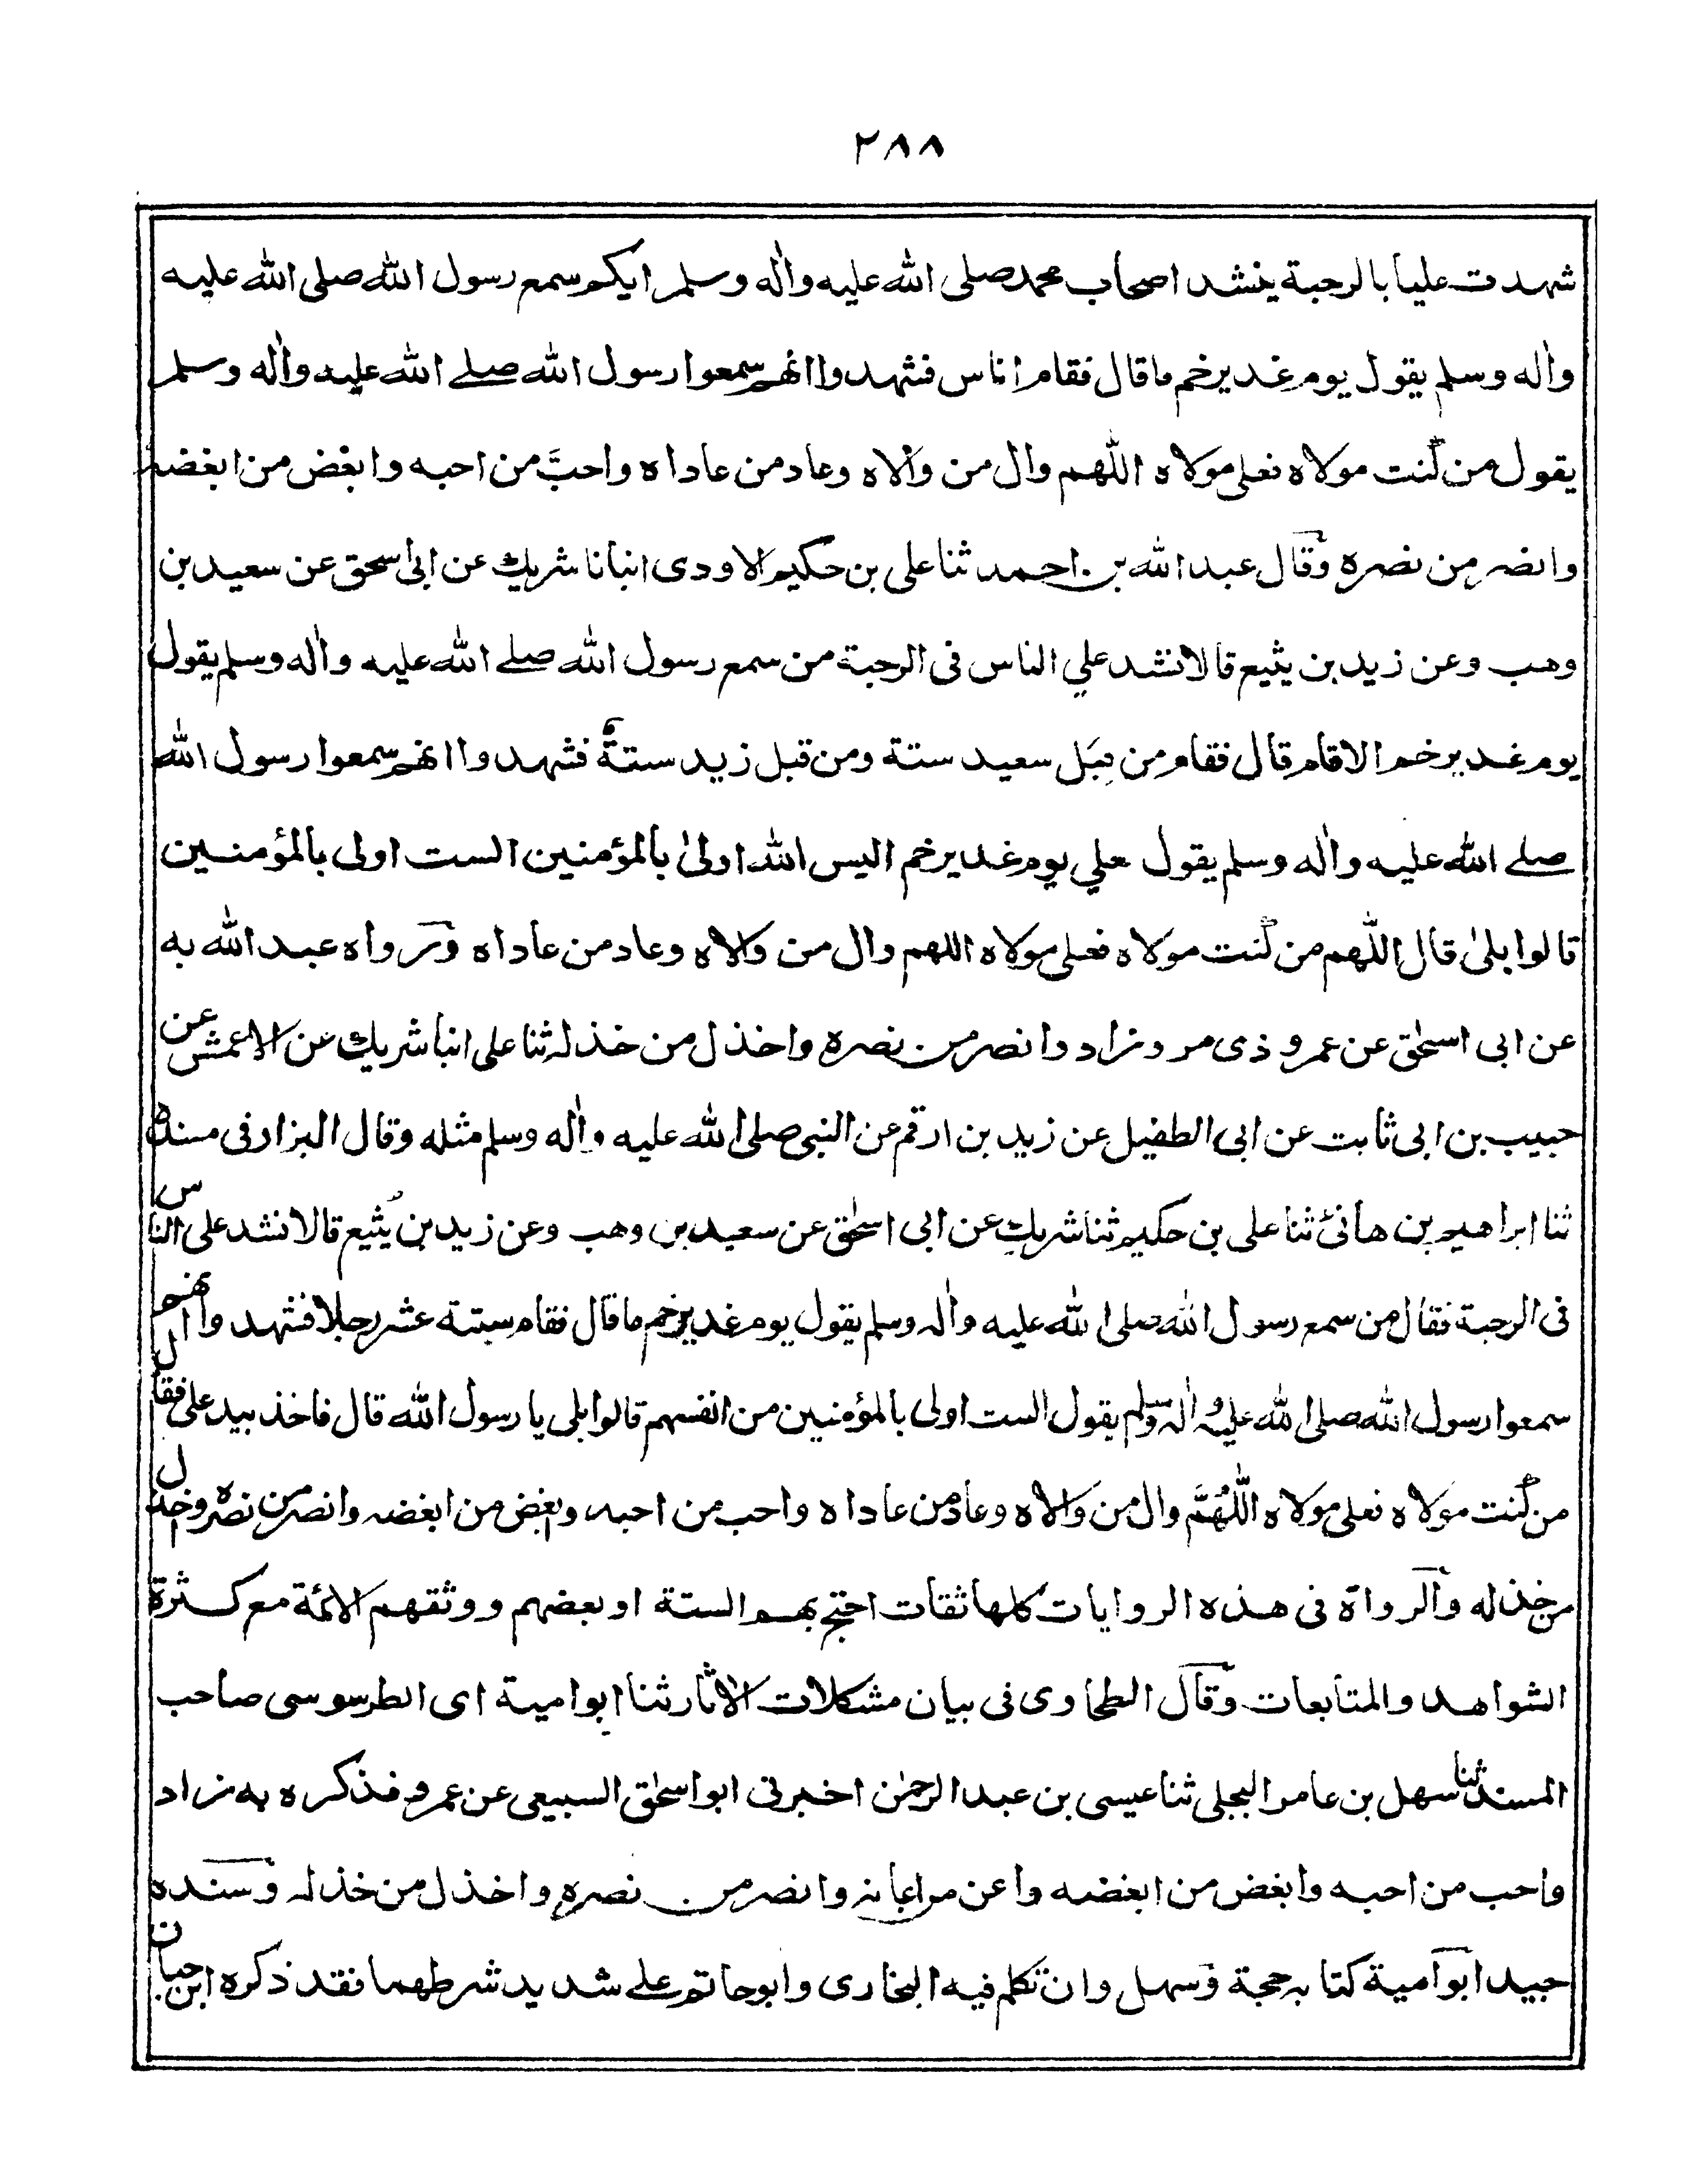 ٢٨٨
شهدت عليا بالرحبة ينشد اصحاب محمد صلى الله عليه واٰله وسلم ايكم سمع رسول الله صلى الله عليه
واٰله وسلم يقول يوم غدير خم ما قال فقام اناس فشهدوا انهم سمعوا رسول الله صلے الله عليه واٰله وسلم
يقول من كنت مولاه فعلى مولاه اللّٰهم وال من والاه وعاد من عاداه واحبَّ من احبه وابغض من ابغضه
وانصر من نصره وقال عبد الله بن احمد ثنا على بن حكيم الاودى انبانا شريك عن ابى اسحق عن سعيد بن
وهب وعن زيد بن يثيع قالا نشد علي الناس فى الرحبة من سمع رسول الله صلے الله عليه واٰله وسلم يقول
يوم غدير خم الا قام قال فقام من قِبَل سعيد ستة ومن قبل زيد ستةٌ فشهدوا انهم سمعوا رسول الله
صلے الله عليه واٰله وسلم يقول علي يوم غدير خم اليس الله اولىٰ بالمؤمنين الست اولى بالمؤمنين
قالوا بلىٰ قال اللّٰهم من كنت مولاه فعلى مولاه اللهم وال من والاه وعاد من عاداه ورواه عبد الله به
عن ابى اسحٰق عن عمرو ذى مر وزاد وانصر من نصره واخذل من خذله ثنا على انبا شريك عن الاعمش عن
حبيب بن ابى ثابت عن ابى الطفيل عن زيد بن ارقم عن النبى صلى الله عليه واٰله وسلم مثله وقال البزار فى مسنده
ثنا ابراهيم بن هانئ ثنا على بن حكيم ثنا شريك عن ابى اسحٰق عن سعيد بن وهب وعن زيد بن يُثيع قالا نشد على الناس
فى الرحبة فقال من سمع رسول الله صلى الله عليه واٰله وسلم يقول يوم غدير خم ما قال فقام ستة عشر رجلا فشهدوا انهم
سمعوا رسول الله صلى الله عليه واٰله وسلم يقول الست اولى بالمؤمنين من انفسهم قالوا بلى يا رسول الله قال فاخذ بيد على فقال
من كنت مولاه فعلى مولاه اللّٰهُمَّ وال من والاه وعاد من عاداه واحب من احبه وابغض من ابغضه وانصر من نصره واخذل
من خذله والرواة فى هذه الروايات كلها ثقات احتج بهم الستة او بعضهم ووثقهم الائمة مع كثرة
الشواهد والمتابعات وقال الطحاوى فى بيان مشكلات الاٰثار ثنا ابو امية اى الطرسوسى صاحب
المسند ثنا سهل بن عامر البجلى ثنا عيسى بن عبد الرحمٰن اخبرنى ابو اسحٰق السبيعى عن عمرو فذكره به وزاد
واحب من احبه وابغض من ابغضه واعن من اعانه وانصر من نصره واخذل من خذله وسنده
جيد ابو امية كتابه حجة وسهل وان تكلم فيه البخارى وابو حاتم على شديد شرطهما فقد ذكره ابن حبان